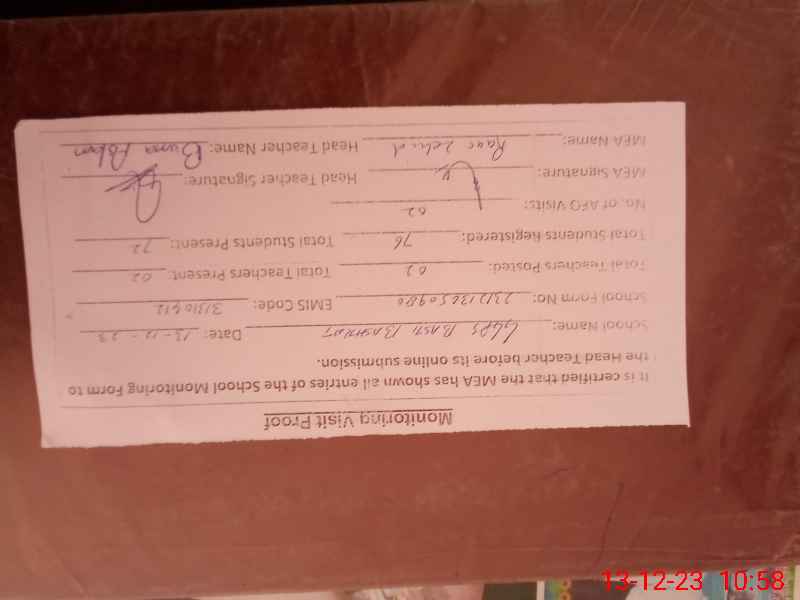 Monitoring Visit Proof
It is certified that the MEA has shown all entries of the School Monitoring Form to
the Head Teacher before its online submission.
School Name: GGPS Basti Date: 13-12-23
School Form No: EMIS Code:
Total Teachers Posted: 02 Total Teachers Present 02
Total Students Registered: 76 Total Students Present: 72
No. of AEO Visits: 02
MEA Signature: Head Teacher Signature:
MEA Name: Head Teacher Name:
13-12-23 10:58